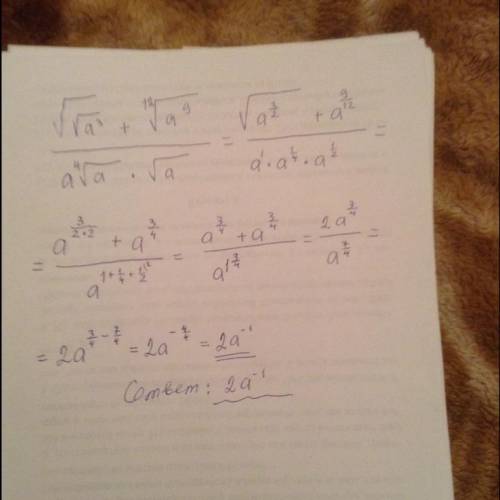 \frac{\sqrt{\sqrt{a^3}} + \sqrt[12]{a^9}}{a\sqrt[4]{a} \cdot \sqrt{a}} = \frac{\sqrt{a^{\frac{3}{2}}} + a^{\frac{9}{12}}}{a^1 \cdot a^{\frac{1}{4}} \cdot a^{\frac{1}{2}}} =
= \frac{a^{\frac{3}{2 \cdot 2}} + a^{\frac{3}{4}}}{a^{1 + \frac{1}{4} + \frac{1}{2}^{2}}} = \frac{a^{\frac{3}{4}} + a^{\frac{3}{4}}}{a^{1\frac{3}{4}}} = \frac{2a^{\frac{3}{4}}}{a^{\frac{7}{4}}} =
= 2a^{\frac{3}{4} - \frac{7}{4}} = 2a^{-\frac{4}{4}} = 2a^{-1}
Ответ: 2a^{-1}